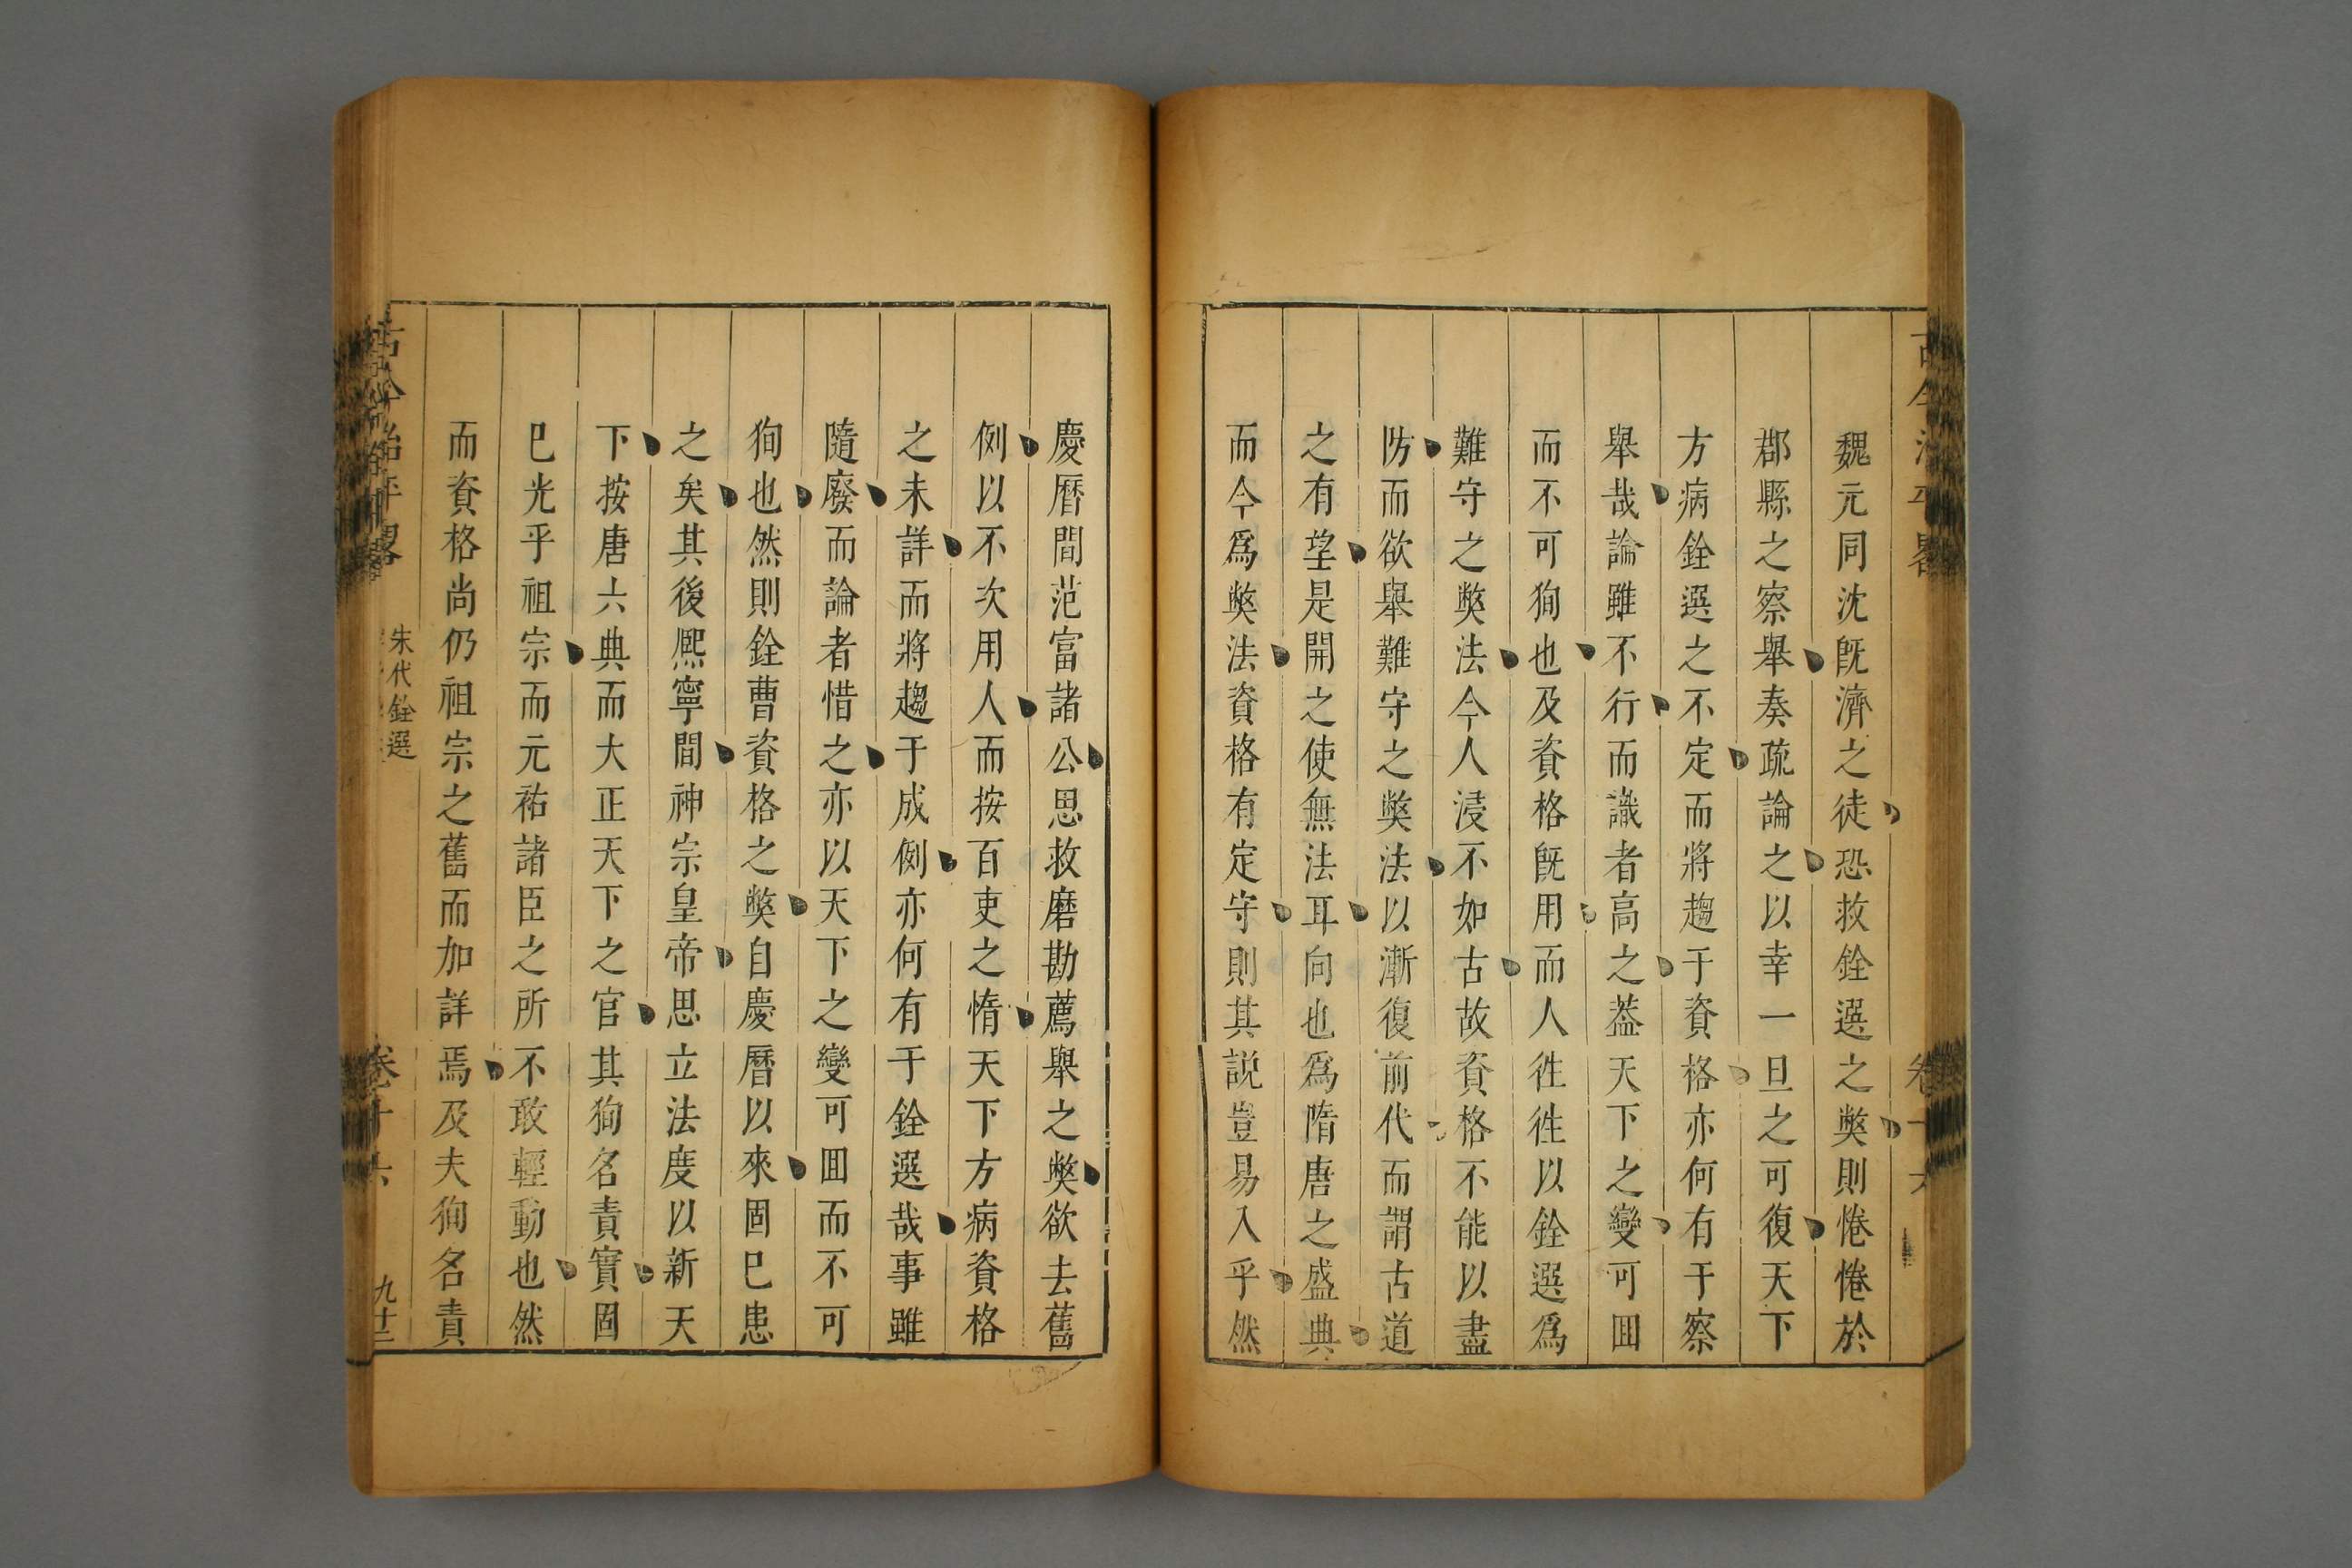 魏元同沈旣濟之徒恐救銓選之獘則惓惓於
郡縣之察舉奏疏論之以幸一旦之可復天下
方病銓選之不定而將趨于資格亦何有于察
舉哉論雖不行而識者高之葢天下之變可囬
而不可狥也及資格旣用而人徃徃以銓選爲
難守之獘法今人浸不如古故資格不能以盡
防而欲舉難守之獘法以漸復前代而謂古道
之有望是開之使無法耳向也爲隋唐之盛典
而今爲獘法資格有定守則其説豈易入乎然
慶曆間范富諸公思救磨勘薦舉之獘欲去舊
例以不次用人而按百吏之惰天下方病資格
之未詳而將趨于成例亦何有于銓選哉事雖
隨廢而論者惜之亦以天下之變可囬而不可
狥也然則銓曹資格之獘自慶曆以來固巳患
之矣其後熈寧間神宗皇帝思立法度以新天
下按唐六典而大正天下之官其狥名責實固
巳光乎祖宗而元祐諸臣之所不敢輕動也然
而資格尚仍祖宗之舊而加詳焉及夫狥名責
古今治平畧
朱代銓選
卷十六
九十三